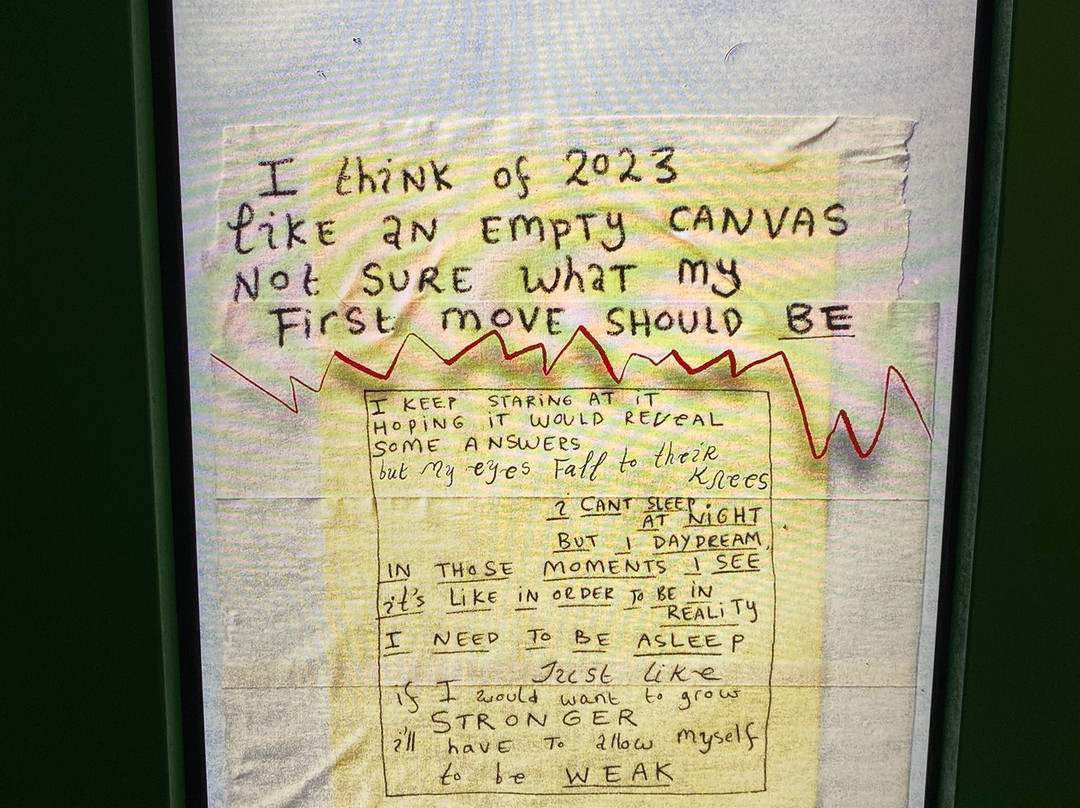 I think of 2023
like an EMPTY CANVAS
Not SURE what my
First move SHOULD BE
I KEEP STARING AT IT
HOPING IT WOULD REVEAL
SOME ANSWERS
but My eyes Fall to their
Knees
i CANT SLEEP
AT NIGHT
BUT I DAYDREAM,
IN THOSE MOMENTS I SEE
it's LIKE IN ORDER TO BE IN
REALITY
I NEED TO BE ASLEEP
Just like
if I would want to grow
STRONGER
i'll have To allow myself
to be WEAK